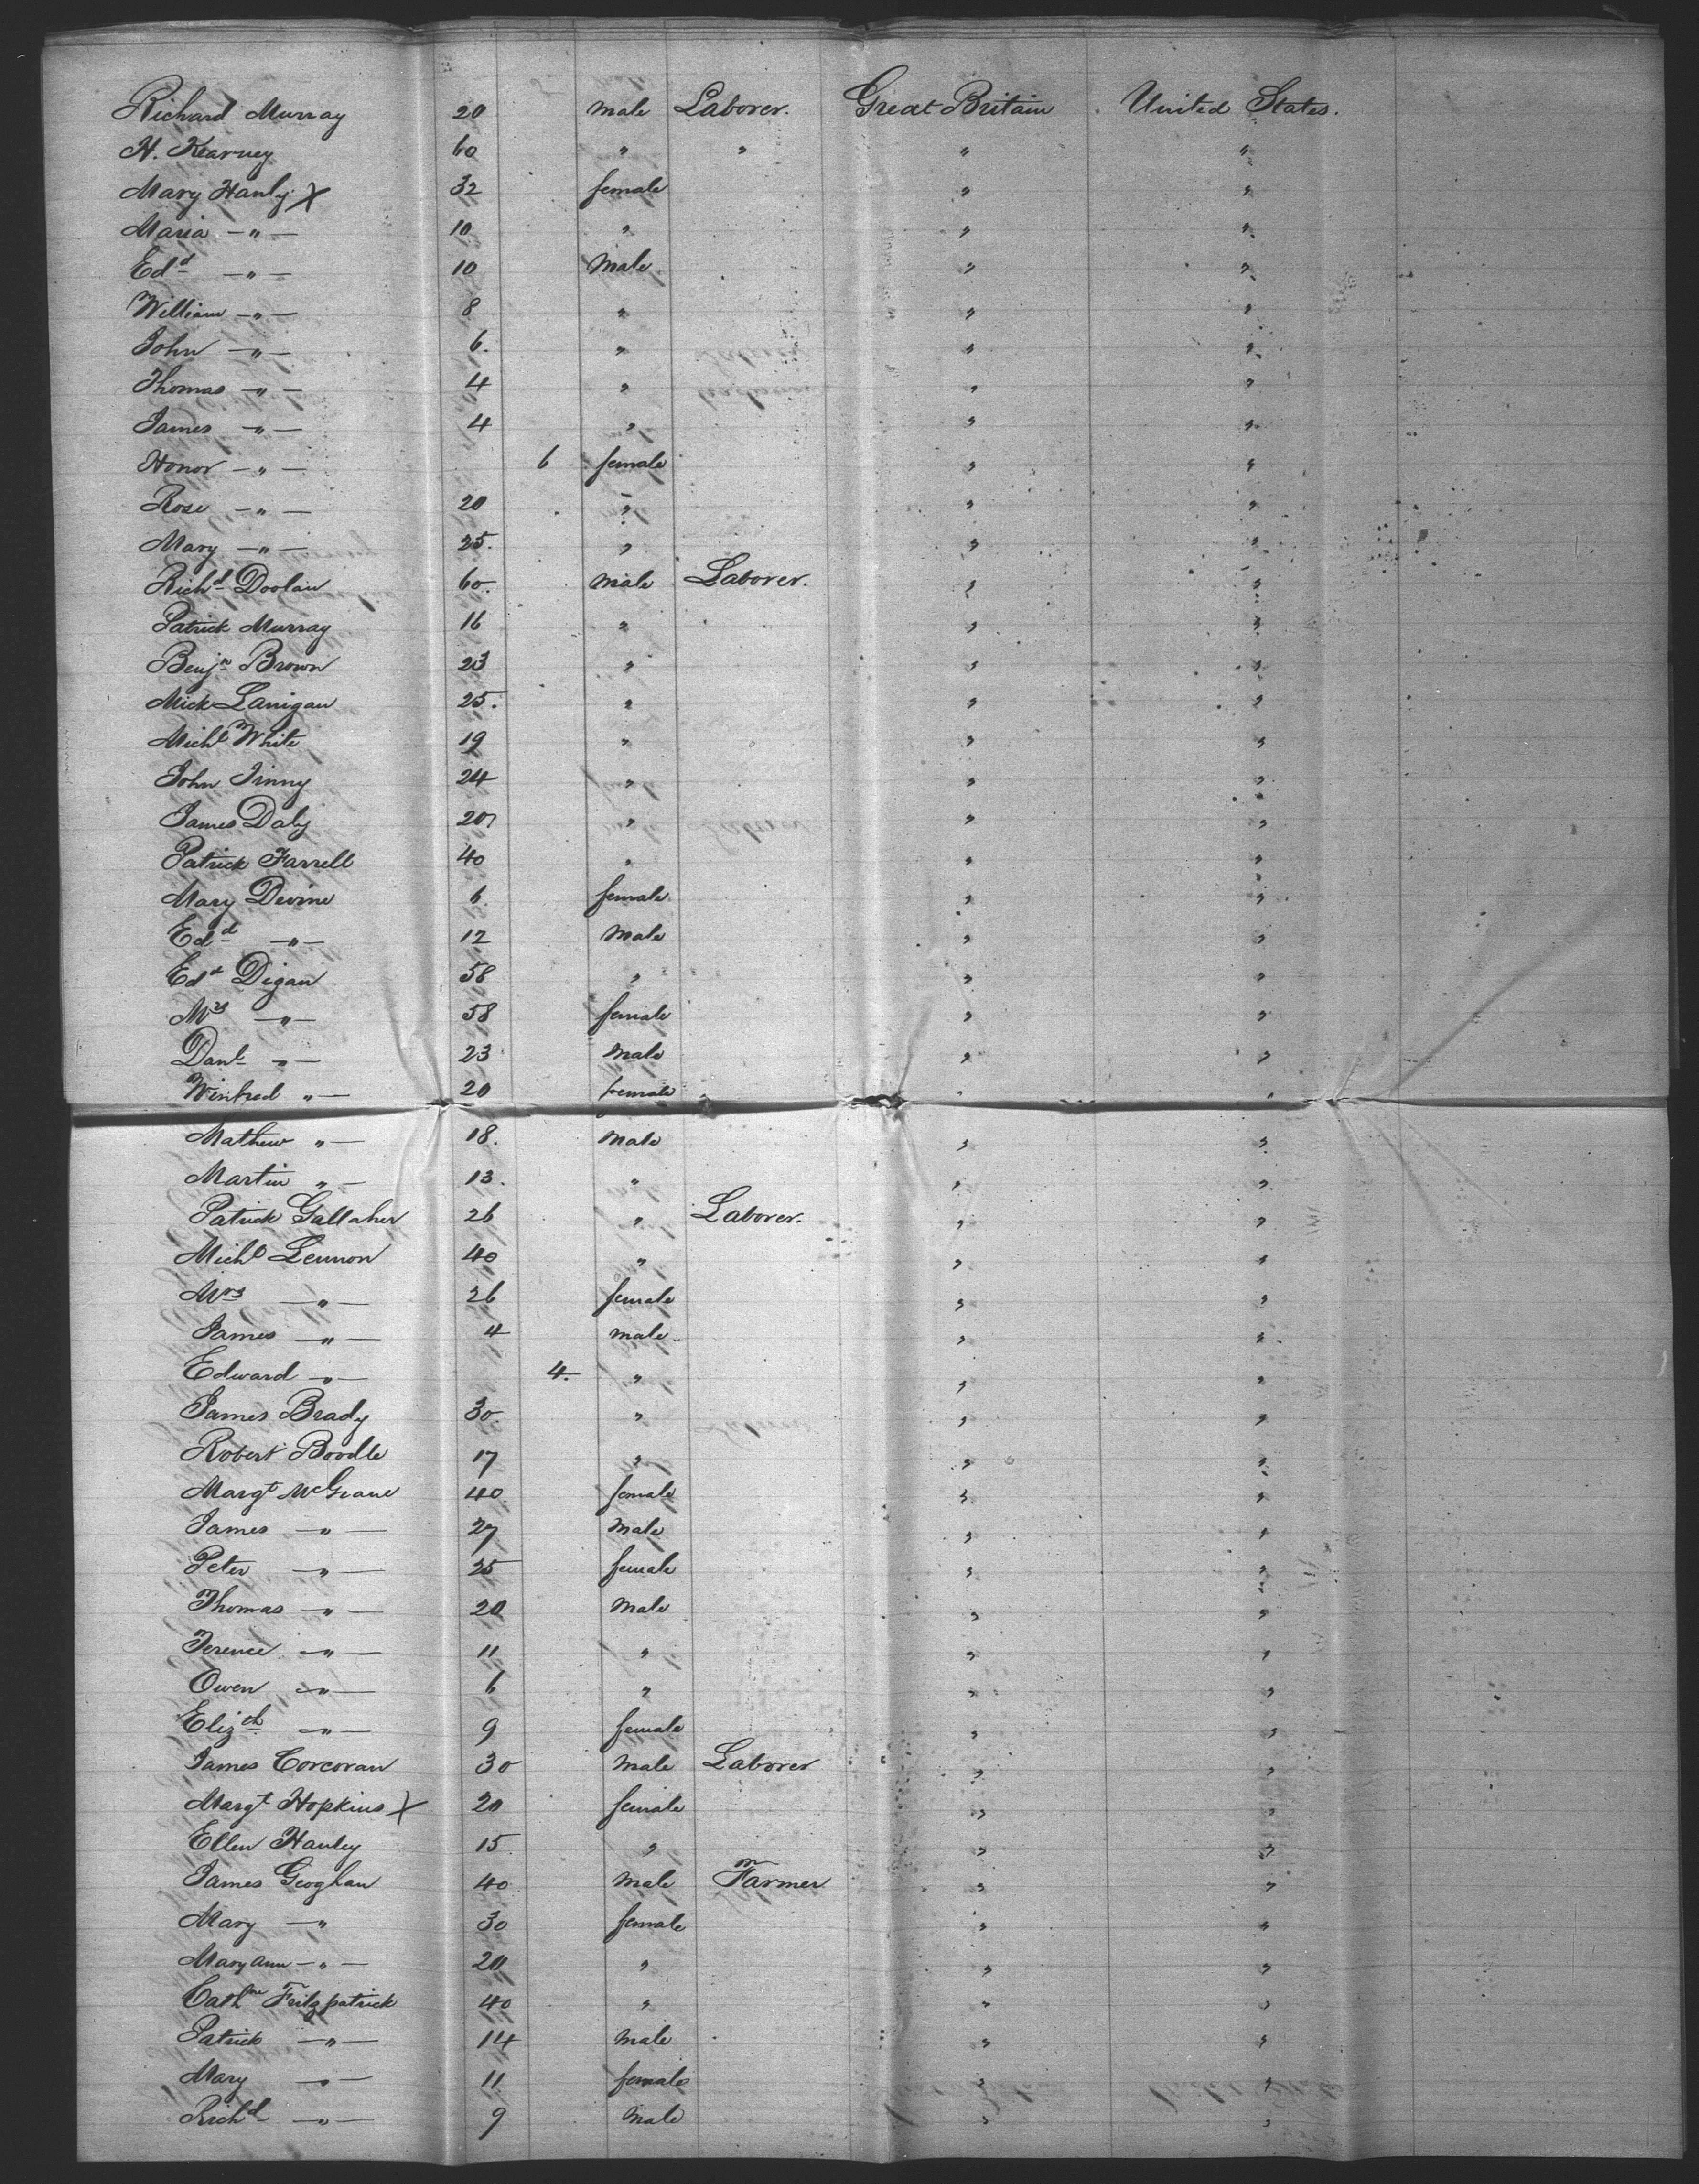 Richard Murray 20 male Laborer. Great Britain United States.
H. Kearney 60 " " " "
Mary Hanly X 32 female " "
Maria —"— 10 " " "
Edd —"— 10 Male " "
William —"— 8 " " "
John —"— 6. " " "
Thomas —"— 4 " " "
James —"— 4 " " "
Honor —"— 6 female " "
Rose —"— 20 " " "
Mary —"— 25. " " "
Richd Doolan 60. male Laborer. " "
Patrick Murray 16 " " "
Benjn Brown 23 " " "
Mick Lanigan 25. " " "
Michl White 19 " " "
John Finny 24 " " "
James Daly 20 " " "
Patrick Farrell 40 " " "
Mary Devine 6. female " "
Edd —"— 12 Male " "
Edd Digan 58 " " "
Mrs —"— 58 female " "
Danl "— 23 Male " "
Winfred "— 20 female " "
Mathew "— 18. Male " "
Martin "— 13. " " "
Patrick Gallaher 26 " Laborer. " "
Michl Lennon 40 " " "
Mrs —"— 26 female " "
James —"— 4 male " "
Edward —"— 4. " " "
James Brady 30. " " "
Robert Boodle 17 " " "
Margt McGrane 40 female " "
James —"— 27 Male " "
Peter —"— 25 female " "
Thomas —"— 20 Male " "
Terence —"— 11 " " "
Owen —"— 6 " " "
Elizth —"— 9 female " "
James Corcoran 30 Male Laborer " "
Margt Hopkins X 20 female " "
Ellen Hanley 15 " " "
James Geoghan 40 Male Farmer " "
Mary —" 30 female " "
Mary Ann —"— 20 " " "
Cathne Fitzpatrick 40 " " "
Patrick —"— 14 Male " "
Mary —"— 11 female " "
Richd —"— 9 Male " "